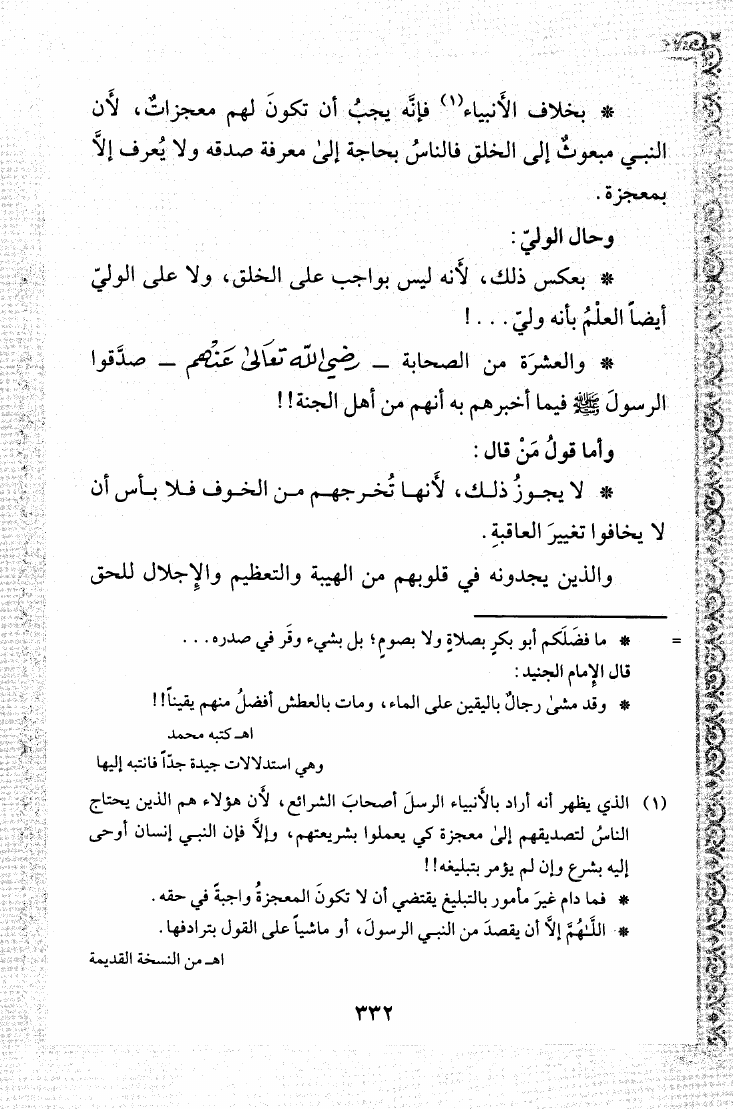 * بخلاف الأَنبياء(١) فإنَّه يجبُ أن تكونَ لهم معجزاتٌ، لأَن
النبي مبعوثٌ إلى الخلق فالناسُ بحاجة إلىٰ معرفة صدقه ولا يُعرف إلاَّ
بمعجزة.
وحال الوليّ:
* بعكس ذلك، لأَنه ليس بواجب على الخلق، ولا على الوليّ
أيضاً العلْمُ بأنه وليّ...!
* والعشرَة من الصحابة ـ رضي الله تعالىٰ عَنْهم ـ صدَّقوا
الرسولَ ﷺ فيما أخبرهم به أنهم من أهل الجنة!!
وأما قولُ مَنْ قال:
* لا يجوزُ ذلك، لأَنها تُخرجهم من الخوف فلا بأس أن
لا يخافوا تغييرَ العاقبةِ.
والذين يجدونه في قلوبهم من الهيبة والتعظيم والإِجلال للحق
= * ما فضَلَكم أبو بكرٍ بصلاةٍ ولا بصومٍ؛ بل بشيء وقَر في صدره...
قال الإمام الجنيد:
* وقد مشىٰ رجالٌ باليقين على الماء، ومات بالعطش أفضلُ منهم يقيناً!!
اهـ كتبه محمد
وهي استدلالات جيدة جدّاً فانتبه إليها
(١) الذي يظهر أنه أراد بالأَنبياء الرسلَ أصحابَ الشرائع، لأَن هؤلاء هم الذين يحتاج
الناسُ لتصديقهم إلىٰ معجزة كي يعملوا بشريعتهم، وإلاَّ فإن النبي إنسان أوحى
إليه بشرع وإن لم يؤمر بتبليغه!!
* فما دام غيرَ مأمور بالتبليغ يقتضي أن لا تكونَ المعجزةُ واجبةً في حقه.
* اللَّـٰهُمَّ إلاَّ أن يقصدَ من النبي الرسولَ، أو ماشياً على القول بترادفها.
اهـ من النسخة القديمة
٣٣٢